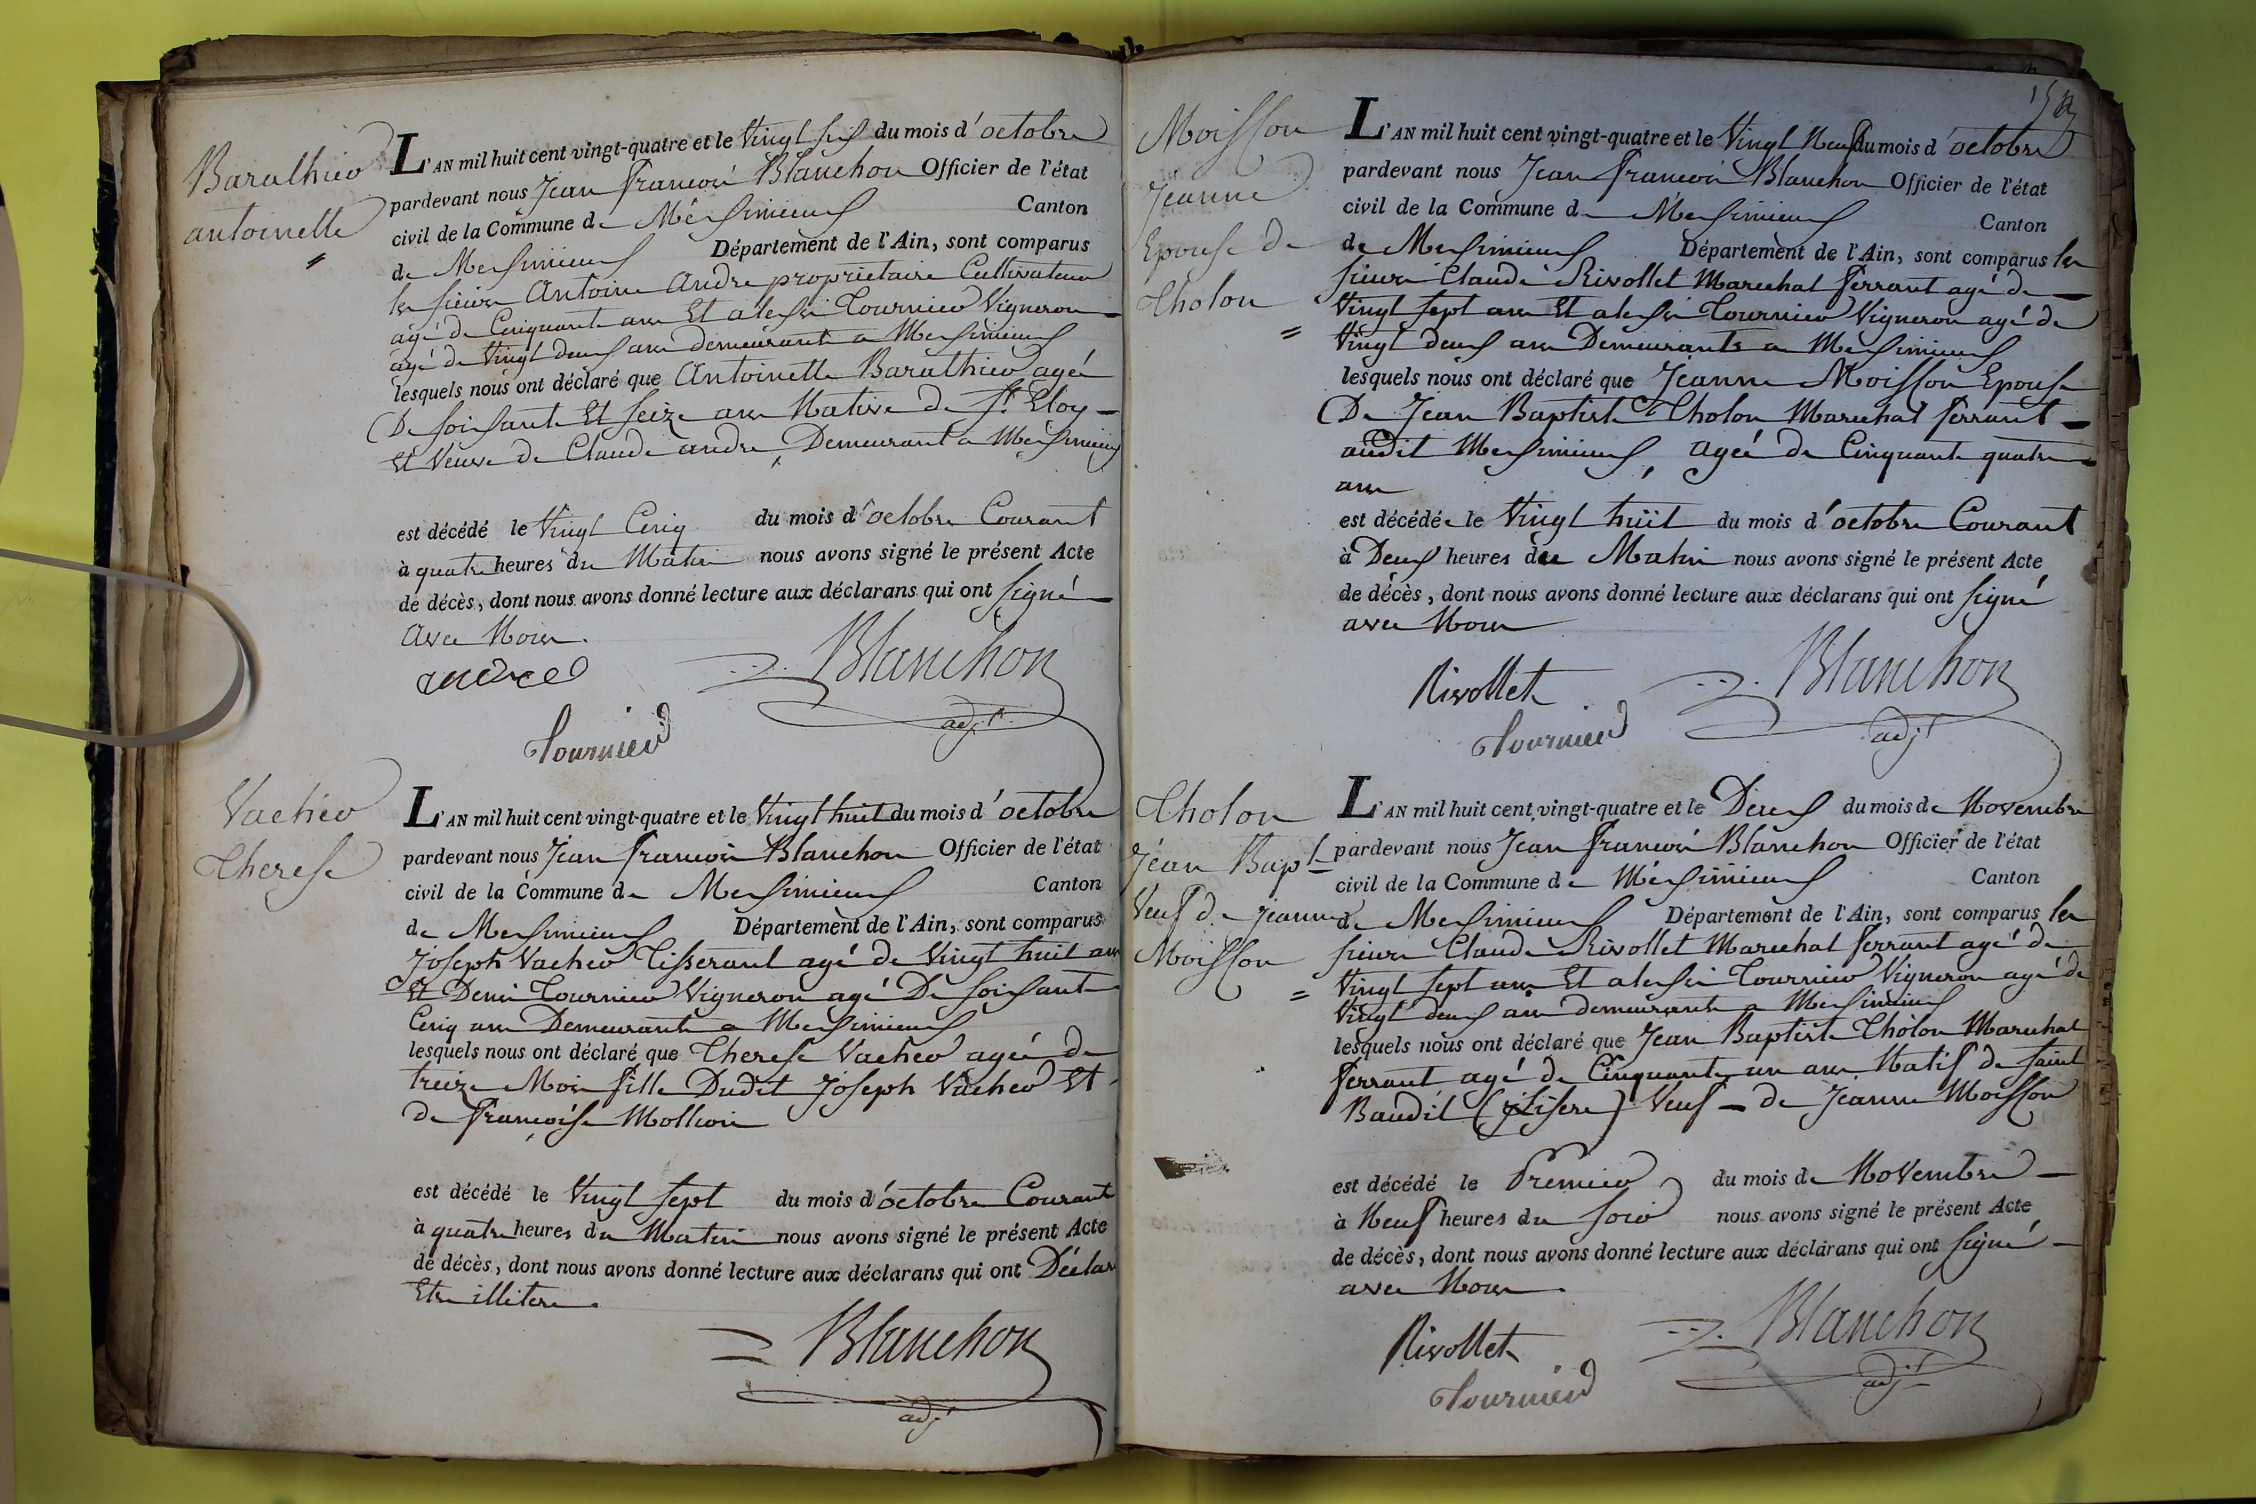 Barathieu
antoinette
L'AN mil huit cent vingt-quatre et le Vingt Six du mois d'octobre
pardevant nous Jean francois Blanchon Officier de l'état
civil de la Commune de Meximieux Canton
de Meximieux Département de l'Ain, sont comparus
les sieurs Antoine Andre proprietaire Cultivateur
agé de Cinquante ans Et alexis Tournier Vigneron
agé de Vingt deux ans demeurants a Meximieux
lesquels nous ont déclaré que Antoinette Barathieu agée
De soixante Et seize ans Native de St Eloy
Et Veuve de Claude andre, Demeurant a Meximieux
est décédé le Vingt Cinq du mois d'octobre Courant
à quatre heures du Matin nous avons signé le présent Acte
de décès, dont nous avons donné lecture aux déclarans qui ont signé
avec Nous.
andre
Blanchon
adjt
Tournier
Vacher
Therese
L'AN mil huit cent vingt-quatre et le Vingt huit du mois d'octobre
pardevant nous Jean francois Blanchon Officier de l'état
civil de la Commune de Meximieux Canton
de Meximieux Département de l'Ain, sont comparus
Joseph Vacher Tisserant agé de Vingt huit ans
Et Denis Tournier Vigneron agé De soixante
Cinq ans Demeurants a Meximieux
lesquels nous ont déclaré que Therese Vacher agée de
treize Mois fille Dudit Joseph Vacher Et
de francoise Mollion
est décédé le Vingt sept du mois d'octobre Courant
à quatre heures du Matin nous avons signé le présent Acte
de décès, dont nous avons donné lecture aux déclarans qui ont Déclaré
Etre illitere.
Blanchon
adjt
Moisson
Jeanne
Epouse de
Tholon
L'AN mil huit cent vingt-quatre et le Vingt Neuf du mois d'octobre
pardevant nous Jean francois Blanchon Officier de l'état
civil de la Commune de Meximieux Canton
de Meximieux Département de l'Ain, sont comparus les
sieurs Claude Rivollet Marechal ferrant agé de
Vingt sept ans Et alexis Tournier Vigneron agé de
Vingt deux ans Demeurants a Meximieux
lesquels nous ont déclaré que Jeanne Moisson Epouse
De Jean Baptiste Tholon Marechal ferrant
audit Meximieux, agée de Cinquante quatre
ans
est décédée le Vingt huit du mois d'octobre Courant
à Deux heures du Matin nous avons signé le présent Acte
de décès, dont nous avons donné lecture aux déclarans qui ont signé
avec Nous
Rivollet
Blanchon
adjt
Tournier
Tholon
Jean Bapt
Veuf de Jeanne
Moisson
L'AN mil huit cent vingt-quatre et le Deux du mois de Novembre
pardevant nous Jean francois Blanchon Officier de l'état
civil de la Commune de Meximieux Canton
de Meximieux Département de l'Ain, sont comparus les
sieurs Claude Rivollet Marechal ferrant agé de
Vingt sept ans Et alexis Tournier Vigneron agé de
Vingt deux ans demeurants a Meximieux
lesquels nous ont déclaré que Jean Baptiste Tholon Marechal
ferrant agé de Cinquante un ans Natif de saint
Baudil (Lisere) Veuf de Jeanne Moisson
est décédé le Premier du mois de Novembre
à Neuf heures du soir nous avons signé le présent Acte
de décès, dont nous avons donné lecture aux déclarans qui ont signé
avec Nous.
Rivollet
Blanchon
adjt
Tournier